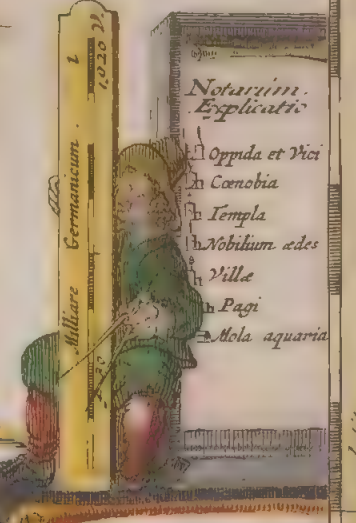 Milliare Germanicum. 1
Notarum.
Explicatio
Oppida et Vici
Cœnobia
Templa
Nobilium ædes
Villæ
Pagi
Mola aquaria